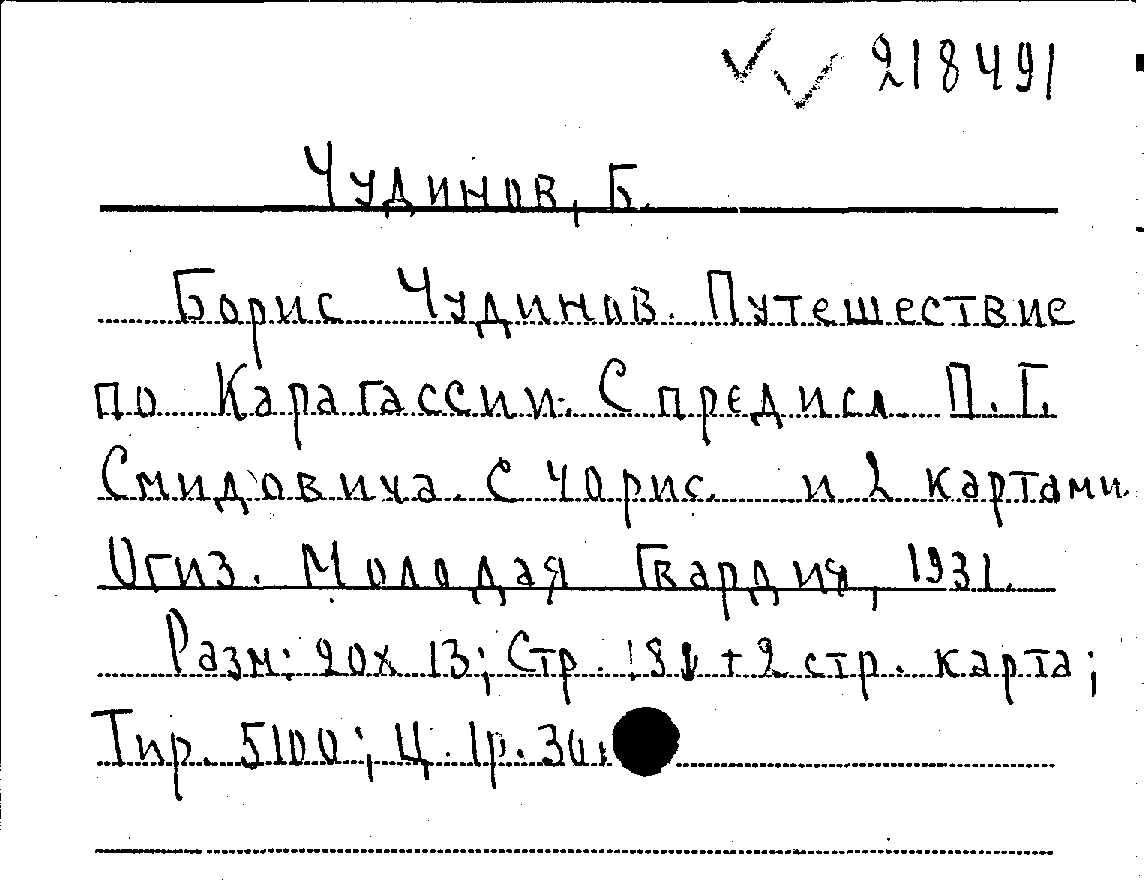 218491
Чудинов, Б.
Борис Чудинов. Путешествие
по Карагассии. С предисл. П. Г.
Смидовича. С 40 рис. и 2 картами.
Огиз. Молодая Гвардия, 1931.
Разм: 20х13; Стр. + 2 стр. карта;
Тир. 5100; Ц. 1р. 30